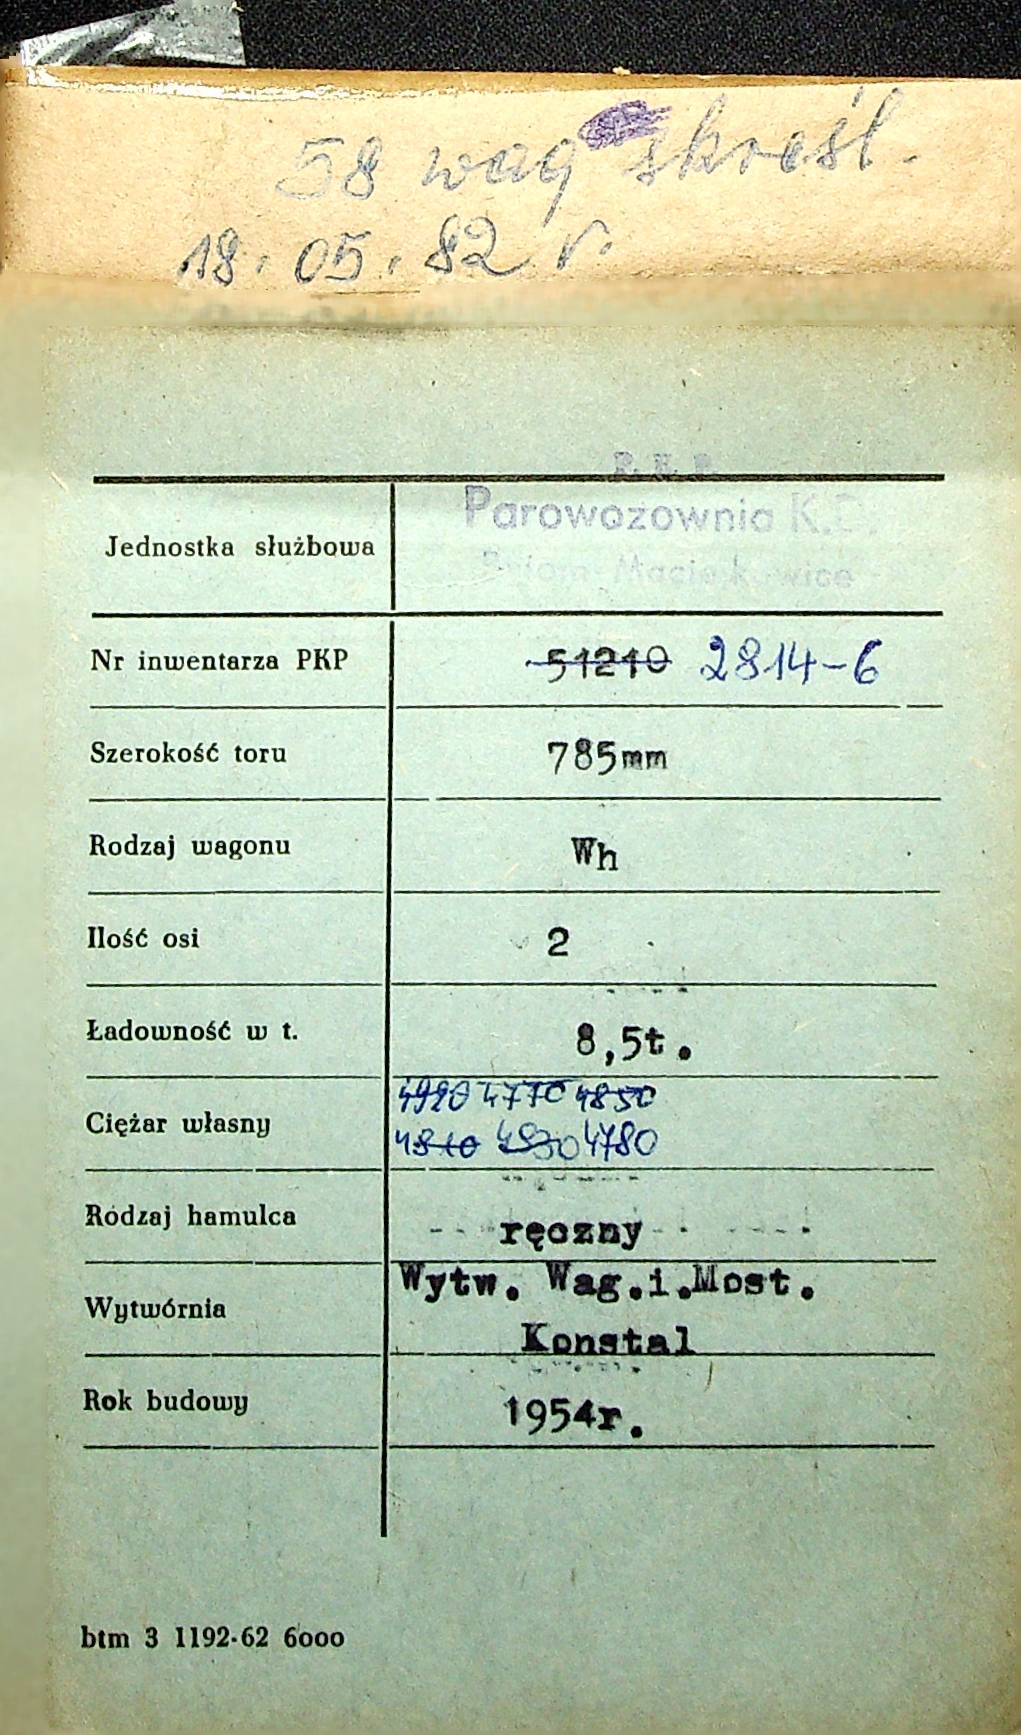 58 wag skreśl.
18.05.82 r.
P. K. P.
Parowozownia K.D.
Jednostka służbowa
Bytom Maciejkowice
Nr inwentarza PKP 51210 2814-6
Szerokość toru 785mm
Rodzaj wagonu Wh
Ilość osi 2
Ładowność w t. 8,5t.
4920 4770 4850
Ciężar własny
4810 4830 4780
Rodzaj hamulca ręczny
Wytw. Wag.i.Most.
Wytwórnia
Konstal
Rok budowy 1954r.
btm 3 1192-62 6000